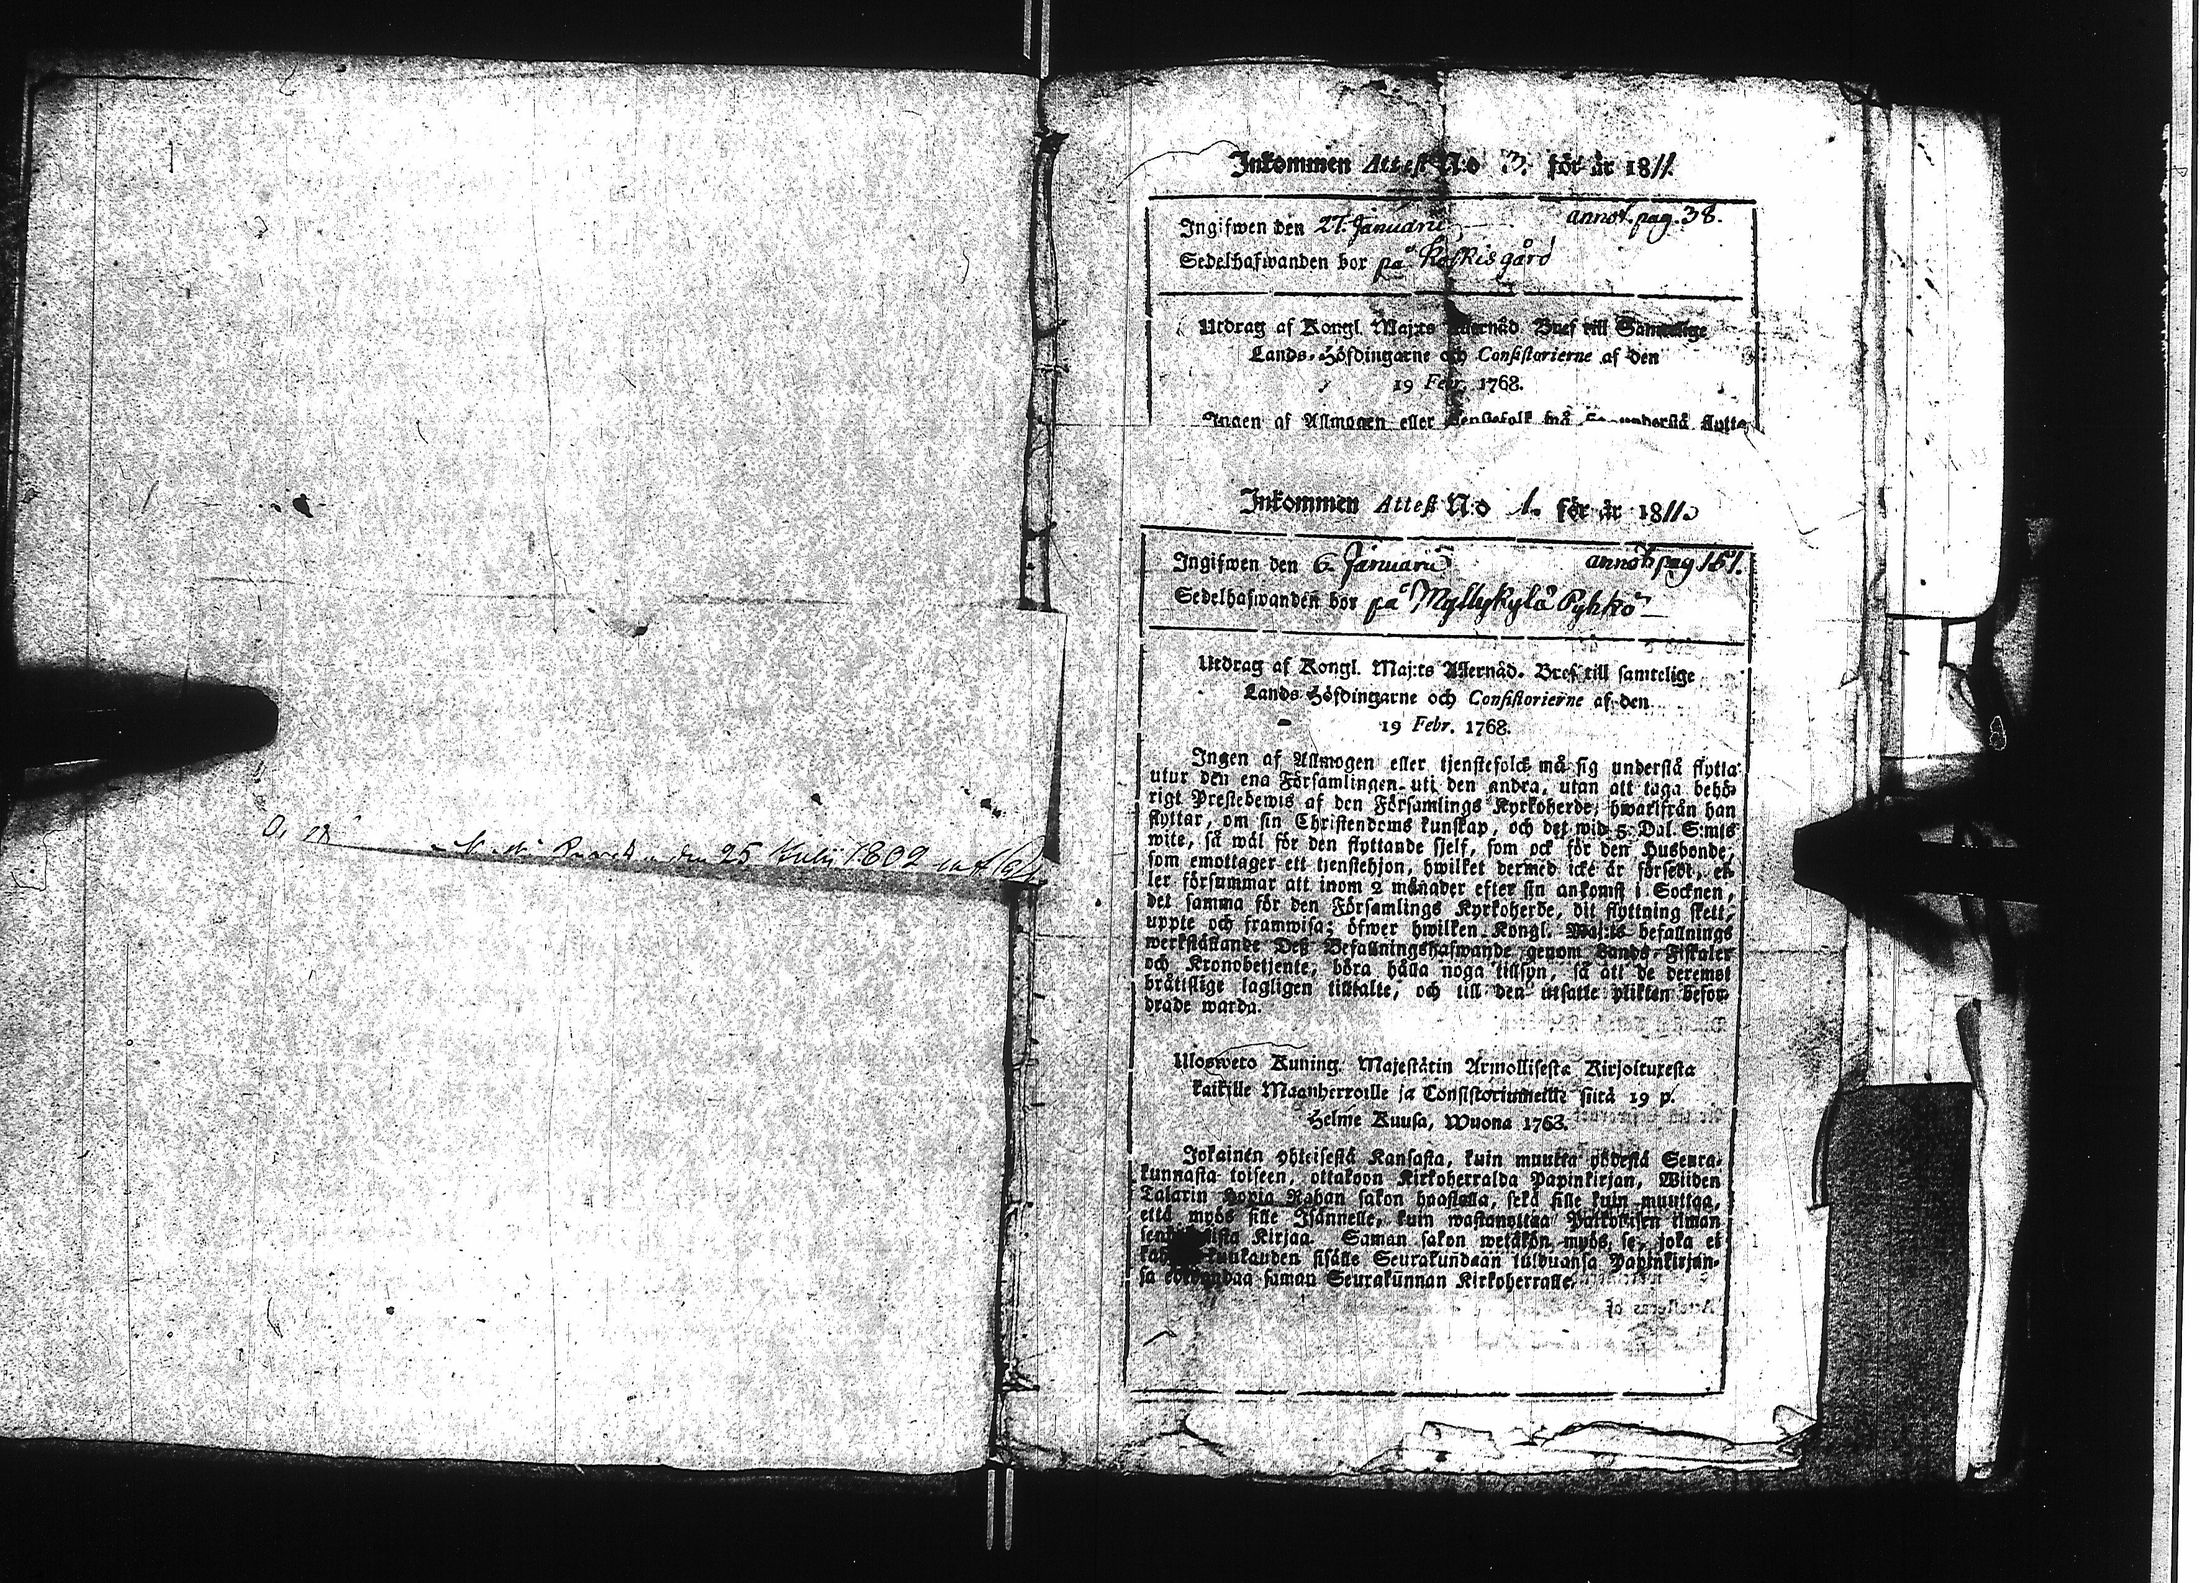 25 Julii 1802
Inkommen Attest N:o 3. för år 1811.
Ingifwen den 27. Januarii annot. pag. 38.
Sedelhafwanden bor på Koskis gård
Utdrag af Kongl. Maj:ts Allernåd. Bref till Samtelige
Lands-Höfdingarne och Consistorierne af den
19 Febr. 1768.
Ingen af Allmogen eller tjenstefolk må sig understå flytta
Inkommen Attest N:o 1. för år 1811.
Ingifwen den 6. Januarii annot. pag 151.
Sedelhafwanden bor på Myllykylä Pyhkö
Utdrag af Kongl. Maj:ts Allernåd. Bref till samtelige
Lands Höfdingarne och Consistorierne af den
19 Febr. 1768.
Ingen af Allmogen eller tjenstefolck må sig understå flytta
utur den ena Församlingen uti den andra, utan att taga behö-
rigt Prestebewis af den Församlings Kyrkoherde, hwarifrån han
flyttar, om sin Christendoms kunskap, och det wid 5 Dal. S:mts
wite, så wäl för den flyttande sjelf, som ock för den Husbonde,
som emottager ett tienstehjon, hwilket dermed icke är försedt, el-
ler försummar att inom 2 månader efter sin ankomst i Socknen,
det samma för den Församlings Kyrkoherde, dit flyttning skett,
uppte och framwisa; öfwer hwilken Kongl. Maj:ts befallnings
werkställande Deß Befallningshafwande genom Lands-Fiskaler
och Kronobetjente, böra hålla noga tillsyn, så att de deremot
bråttslige lagligen tilltalte, och till den utsatte plikten befor-
drade warda.
Ulosweto Kuning. Majestätin Armollisesta Kirjoituxesta
kaikille Maanherroille ja Consistoriumeille siitä 19 p.
Helme Kuusa, Wuona 1768.
Jokainen yhteisestä Kansasta, kuin muutta yhdestä Seura-
kunnasta toiseen, ottakoon Kirkoherralda Papinkirjan, Wiiden
Talarin Hopia Rahan sakon haastolla, sekä sille kuin muuttaa,
että myös sille Isännelle, kuin wastanottaa Palkollisen ilman
Kirjaa. Saman sakon wetäkön myös, se, joka ei
kuukauden sisälle Seurakundaan tulduansa Papinkirjan-
sa saman Seurakunnan Kirkoherralle.